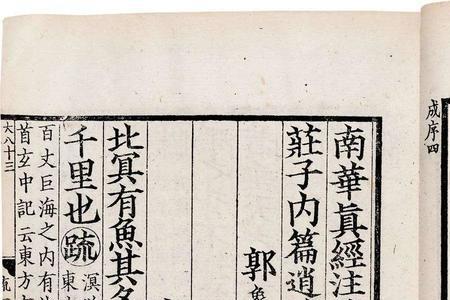 成序四
南華眞經注
莊子內篇逍
郭
北冥有魚其名
千里也疏
溟
東
百丈巨海之內有
首玄中記云東方
大八十三